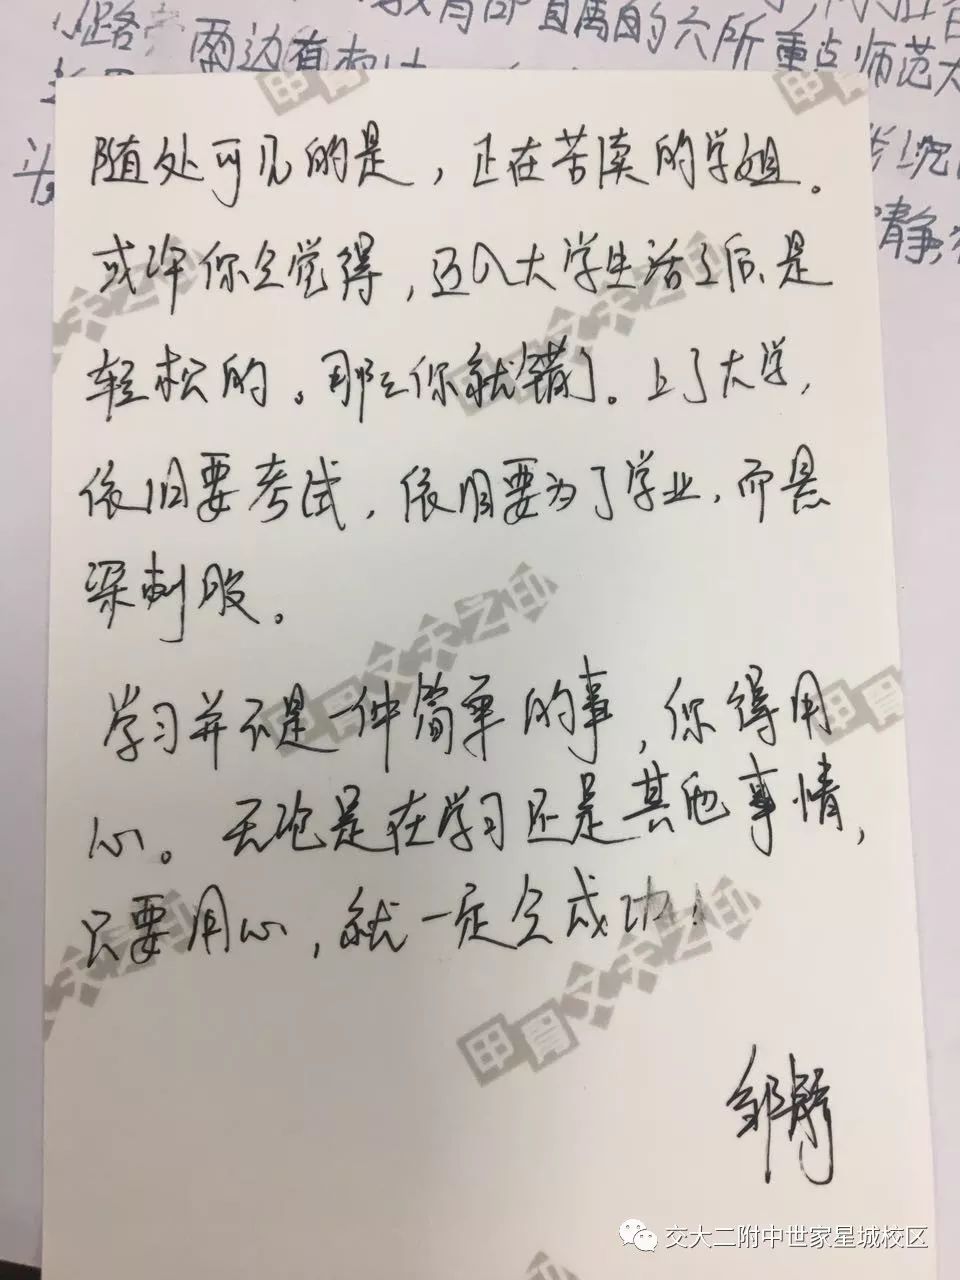 路旁两边有
教育部直属的六所重点师范大
随处可见的是，正在苦读的学姐。
或许你会觉得，迈入大学生活之后是
轻松的。那么你就错了。上了大学，
依旧要考试，依旧要为了学业，而悬
梁刺股。
学习并不是一件简单的事，你得用
心。无论是在学习还是其他事情，
只要用心，就一定会成功！
甲骨文天之印
交大二附中世家星城校区